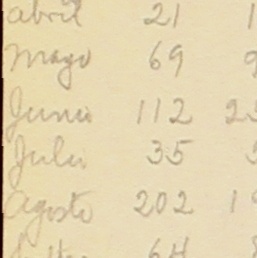 abril 21 1
Mayo 69 9
Junio 112 25
Julio 35
Agosto 202 19
64